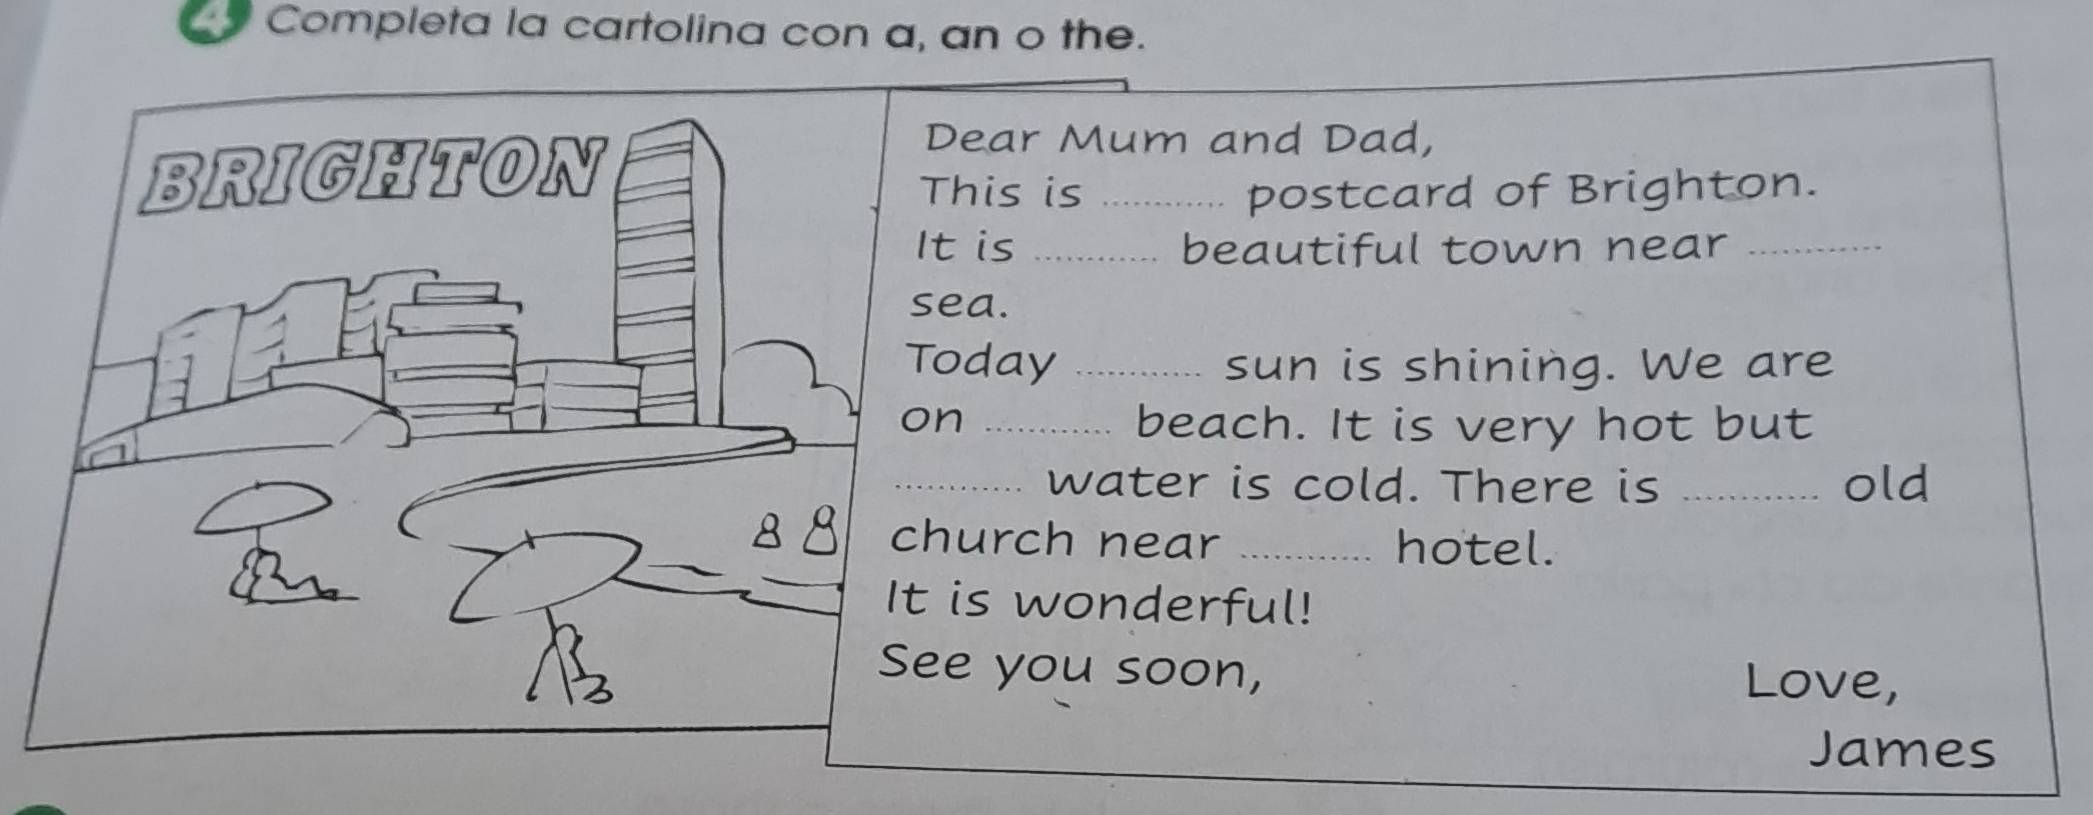 4 Completa la cartolina con a, an o the.
BRIGHTON
Dear Mum and Dad,
This is ............ postcard of Brighton.
It is ............ beautiful town near ............
sea.
Today ............ sun is shining. We are
on ............ beach. It is very hot but
............ water is cold. There is ............ old
church near ............ hotel.
It is wonderful!
See you soon,
Love,
James